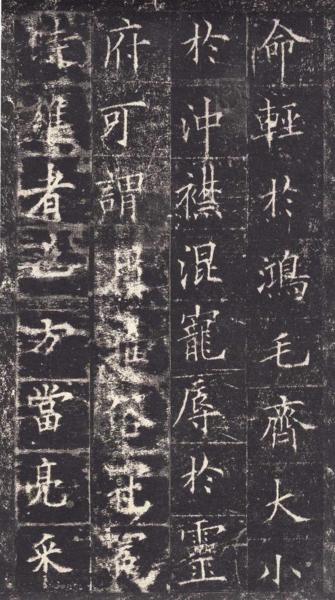 命輕於鴻毛齊大小
於沖襟混寵辱於靈
府可謂
者也方當亮采